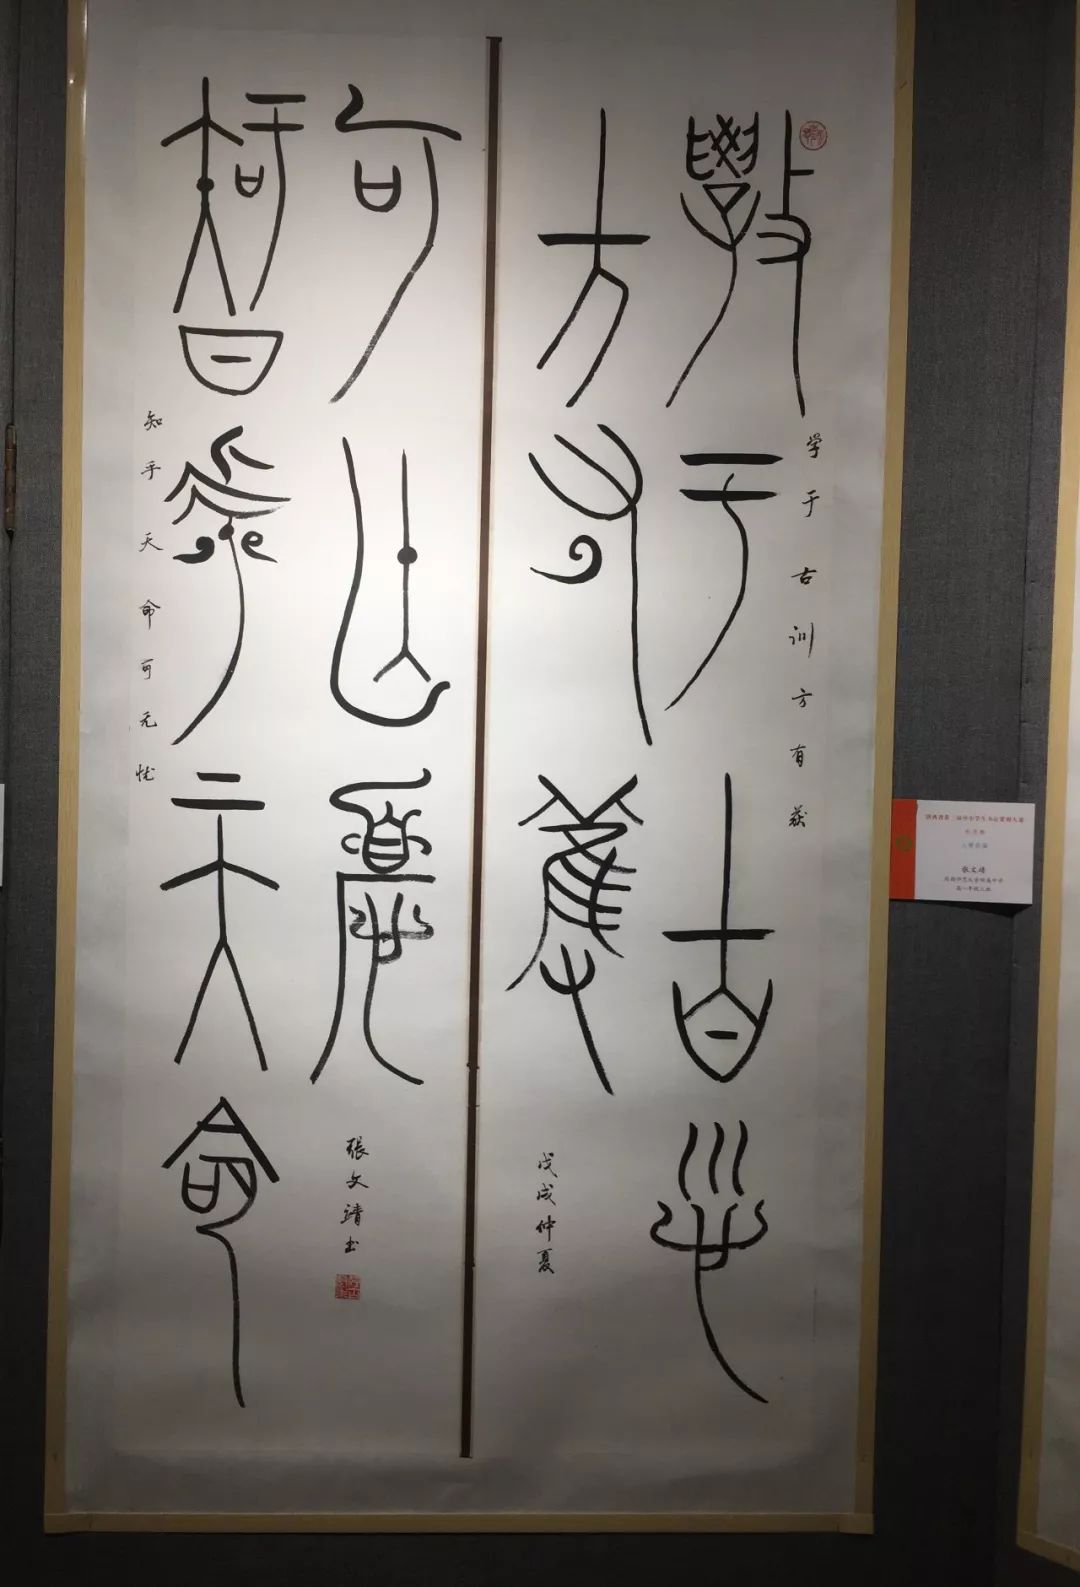 斅于古訓
方有獲
学于古训方有获
戊戌仲夏
智乎天命
可亡憂
知乎天命可无忧
張文靖书
张文靖